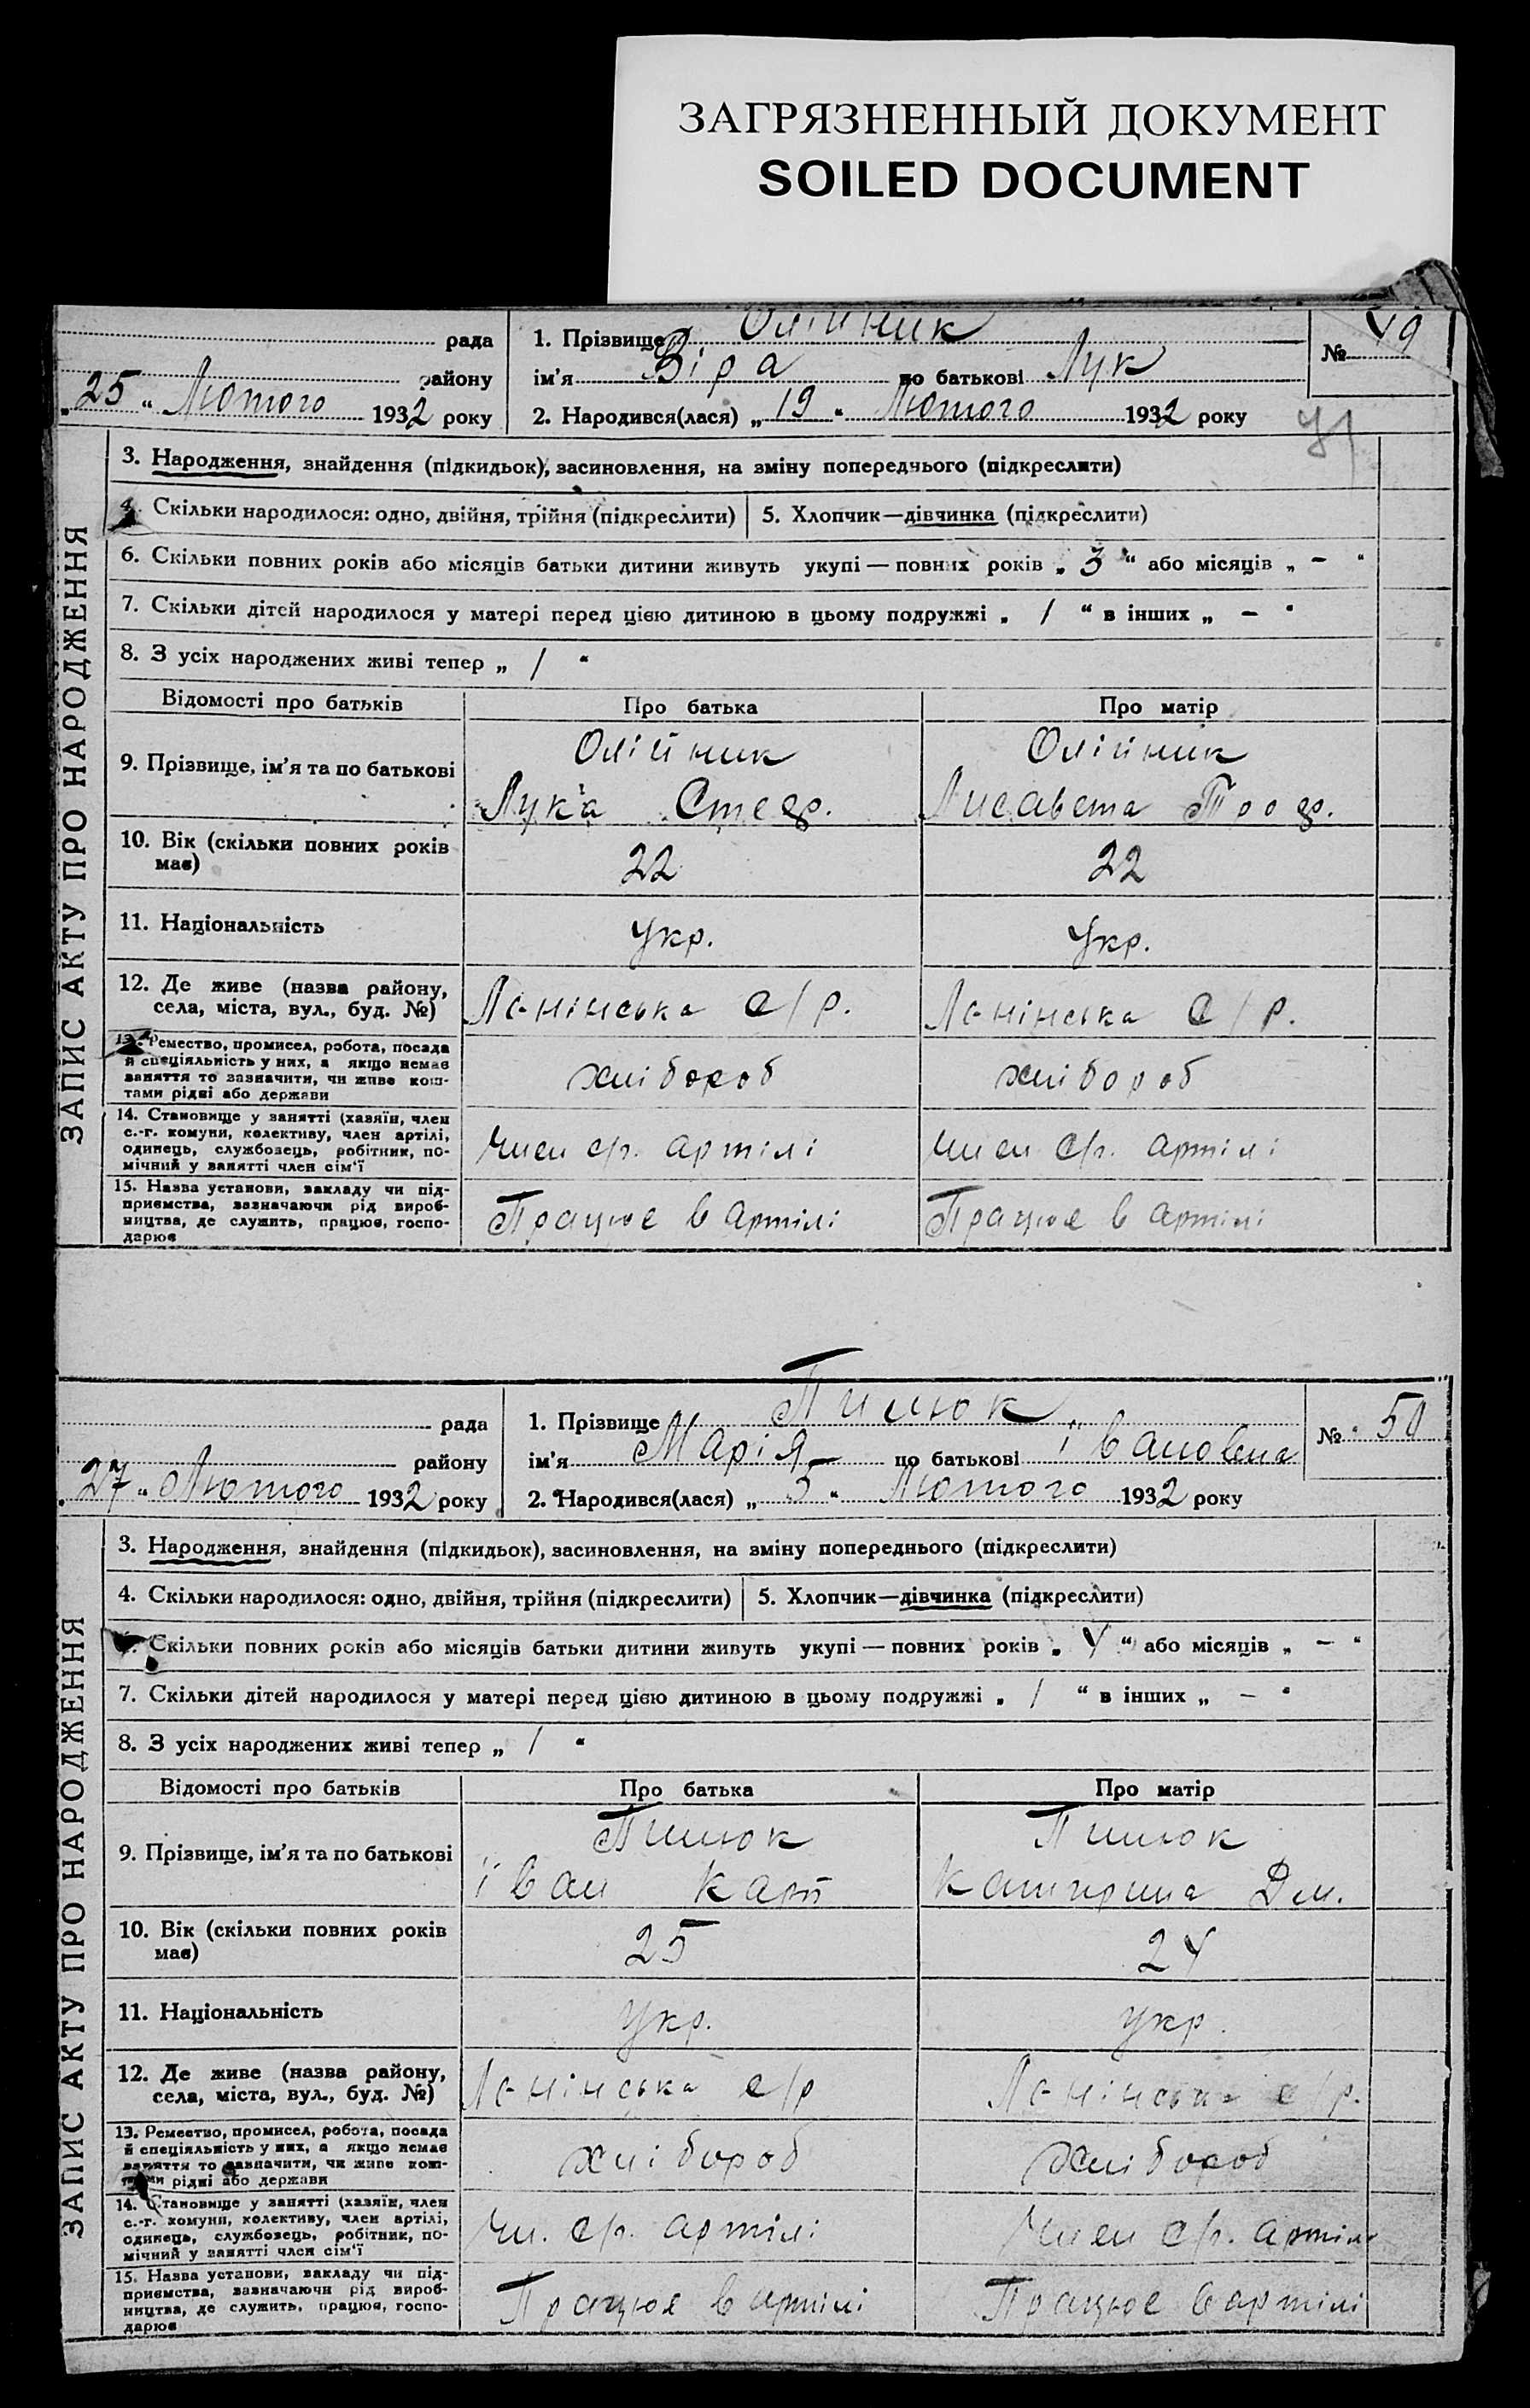 ЗАГРЯЗНЕННЫЙ ДОКУМЕНТ
SOILED DOCUMENT
рада
району
„25“ Лютого 1932 року
1. Прізвище Олійник
ім'я Віра по батькові Лук
2. Народився(лася) „19“ Лютого 1932 року
№ 49
ЗАПИС АКТУ ПРО НАРОДЖЕННЯ
3. Народження, знайдення (підкидьок), засиновлення, на зміну попереднього (підкреслити)
4. Скільки народилося: одно, двійня, трійня (підкреслити) 5. Хлопчик—дівчинка (підкреслити)
6. Скільки повних років або місяців батьки дитини живуть укупі — повних років „3“ або місяців „–“
7. Скільки дітей народилося у матері перед цією дитиною в цьому подружжі „1“ в інших „–“
8. З усіх народжених живі тепер „1“
Відомості про батьків Про батька Про матір
9. Прізвище, ім'я та по батькові
Олійник Олійник
Лука Стеф. Лисавета Троф.
10. Вік (скільки повних років має) 22 22
11. Національність Укр. Укр.
12. Де живе (назва району,
села, міста, вул., буд. №) Ленінська с/р. Ленінська с/р.
13. Ремество, промисел, робота, посада
й спеціяльність у них, а якщо немає
заняття то зазначити, чи живе кош-
тами рідні або держави
хлібороб хлібороб
14. Становище у занятті (хазяїн, член
с.-г. комуни, колективу, член артілі,
одинець, службовець, робітник, по-
мічний у занятті член сім'ї
член с/г. артілі член с/г. артілі
15. Назва установи, закладу чи під-
приємства, зазначаючи рід вироб-
ництва, де служить, працює, госпо-
дарює
Працює в артілі Працює в артілі
рада
району
„27“ Лютого 1932 року
1. Прізвище Пилюк
ім'я Марія по батькові Івановна
2. Народився(лася) „5“ Лютого 1932 року
№ 50
ЗАПИС АКТУ ПРО НАРОДЖЕННЯ
3. Народження, знайдення (підкидьок), засиновлення, на зміну попереднього (підкреслити)
4. Скільки народилося: одно, двійня, трійня (підкреслити) 5. Хлопчик—дівчинка (підкреслити)
Скільки повних років або місяців батьки дитини живуть укупі — повних років „4“ або місяців „–“
7. Скільки дітей народилося у матері перед цією дитиною в цьому подружжі „1“ в інших „–“
8. З усіх народжених живі тепер „1“
Відомості про батьків Про батька Про матір
9. Прізвище, ім'я та по батькові
Пилюк Пилюк
Іван Карп Катирина Дм.
10. Вік (скільки повних років має) 25 24
11. Національність Укр. Укр.
12. Де живе (назва району,
села, міста, вул., буд. №) Ленінська с/р Ленінська с/р.
13. Ремество, промисел, робота, посада
й спеціяльність у них, а якщо немає
заняття то зазначити, чи живе кош-
тами рідні або держави
хлібороб хлібороб
14. Становище у занятті (хазяїн, член
с.-г. комуни, колективу, член артілі,
одинець, службовець, робітник, по-
мічний у занятті член сім'ї
чл. с/г. артілі член с/г. артілі
15. Назва установи, закладу чи під-
приємства, зазначаючи рід вироб-
ництва, де служить, працює, госпо-
дарює
Працює в артілі Працює в артілі